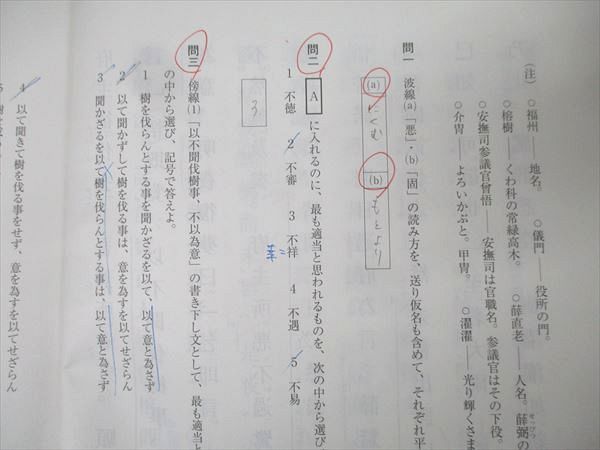 （注） ○福州――地名。 ○儀門――役所の門。
○榕樹――くわ科の常緑高木。 ○薛直老――人名。薛弼の
○安撫司参議官曾悟――安撫司は官職名。参議官はその下役。
○介冑――よろいかぶと。甲冑。 ○濯濯――光り輝くさま
問一 波線(a)「悪」・(b)「固」の読み方を、送り仮名も含めて、それぞれ平
(a) にくむ (b) もとより
問二 A に入れるのに、最も適当と思われるものを、次の中から選び
1 不徳 2 不審 3 不祥 4 不遇 5 不易
3
問三 傍線(1)「以不聞伐樹事、不以為意」の書き下し文として、最も適当と
の中から選び、記号で答えよ。
1 樹を伐らんとする事を聞かざるを以て、以て意と為さず
2 以て聞かずして樹を伐る事は、意を為すを以てせざらん
3 聞かざるを以て樹を伐らんとする事は、以て意と為さず
4 以て聞きて樹を伐る事をせず、意を為すを以てせざらん